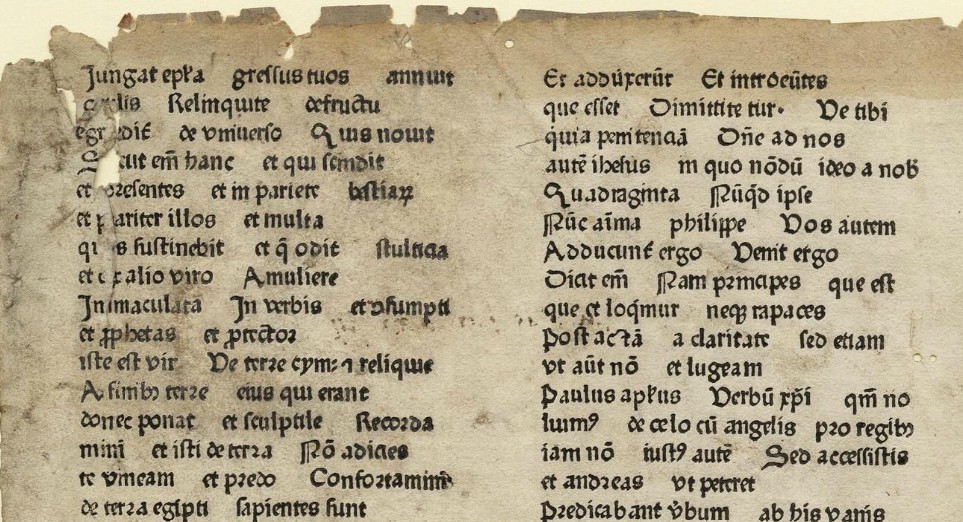 Jungat epl'a gressus tuos annuit
Relinquite defructu
de vniuerso Quis nouit
em̄ hanc et qui scindit
et presentes et in pariete bestiaꝝ
et pariter illos et multa
sustinebit et q̄ odit stulticia
et alio viro A muliere
Inmaculata In verbis et ↄsumpti
et ꝓphetas et ꝓtector
iste est vir De terre relique
A finibꝰ terre eius qui erant
donec ponat et sculptile Recorda
mini et isti de terra Nō adicies
te vineam et predo Confortamini
de terra egipti sapientes sunt
Et adduxerūt Et introeūtes
que esset Dimittite tur· Ve tibi
quia penitenciā Dn̄e ad nos
autē ihesus in quo nōdū ideo a nob̄
Quadraginta Nūq̄d ipse
Nūc aīma philippe Vos autem
Adducunt ergo Venit ergo
Dicit em̄ Nam principes que est
que et loq̄mur neqꝫ rapaces
post actā a claritate sed etiam
vt aūt nō et lugeam
Paulus apl'us Verbū xp̄i qm̄ no
lumꝰ de celo cū angelis pro regibꝰ
iam nō iustꝰ autē Sed accessistis
et andreas vt peteret
predicabant v̄bum ab his vanis